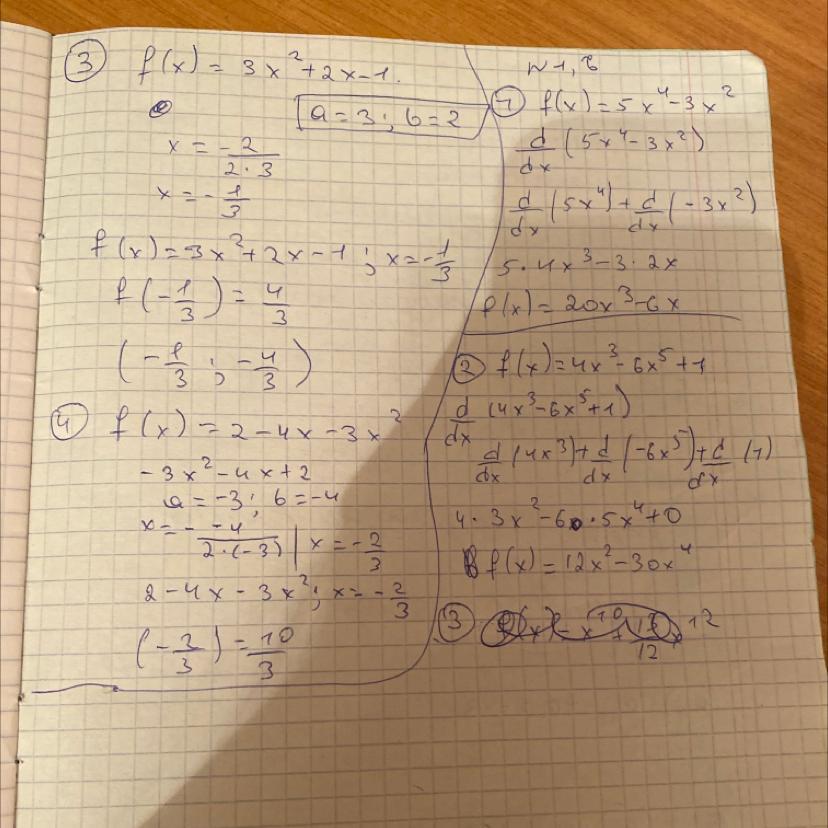 ③ f(x) = 3x²+2x-1.
a = 3; b = 2
x = -2/(2·3)
x = -1/3
f(x) = 3x²+2x-1; x = -1/3
f(-1/3) = 4/3
(-1/3; -4/3)
④ f(x) = 2-4x-3x²
-3x²-4x+2
a = -3; b = -4
x = - -4/(2·(-3)) | x = -2/3
2-4x-3x²; x = -2/3
(-2/3) = 10/3
N1, б
① f(x) = 5x⁴-3x²
d/dx (5x⁴-3x²)
d/dx (5x⁴) + d/dx (-3x²)
5·4x³-3·2x
f(x) = 20x³-6x
② f(x) = 4x³-6x⁵+1
d/dx (4x³-6x⁵+1)
d/dx (4x³) + d/dx (-6x⁵) + d/dx (1)
4·3x²-6·5x⁴+0
f(x) = 12x²-30x⁴
③